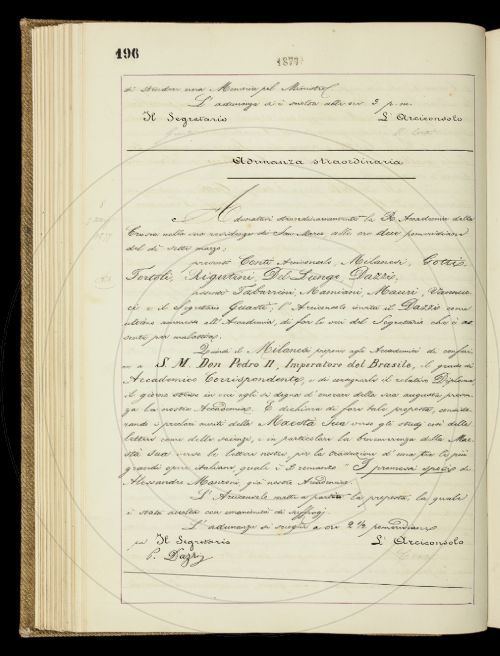 196
1877
di stendere una Memoria pel Ministro
L'adunanza si è sciolta alle ore 3 p. m.
Il Segretario L'Arciconsolo
Adunanza straordinaria
Adunatasi straordinariamente la R. Accademia della
Crusca nella sua residenza di San Marco alle ore due pomeridiane
del dì sette marzo;
presenti Conti Arciconsolo, Milanesi, Gotti,
Tortoli, Rigutini, Del Lungo, Dazzi,
assenti Tabarrini, Mamiani, Mauri, Vannuc-
ci e il Segretario Guasti, l'Arciconsolo invita il Dazzi come
ultimo ammesso all'Accademia, di far le veci del Segretario che è as-
sente per malattia.
Quindi il Milanesi propone agli Accademici di conferi-
re a S. M. Don Pedro II, Imperatore del Brasile, il grado di
Accademico Corrispondente, e di consegnargli il relativo Diploma
il giorno stesso in cui egli si degna d'onorare della sua augusta presen-
za la nostra Accademia. E dichiara di fare tale proposta, conside-
rando i preclari meriti della Maestà Sua verso gli studj così delle
lettere come delle scienze, e in particolare la benemerenza della Mae-
stà Sua verso le lettere nostre per la traduzione di una fra le più
grandi opere italiane, quale è il romanzo "I promessi sposi" di
Alessandro Manzoni, già nostro Accademico.
L'Arciconsolo mette a partito la proposta, la quale
è stata accolta con unanimità di suffragj.
L'adunanza si scioglie a ore 2 ½ pomeridiane
per Il Segretario L'Arciconsolo
P. Dazzi